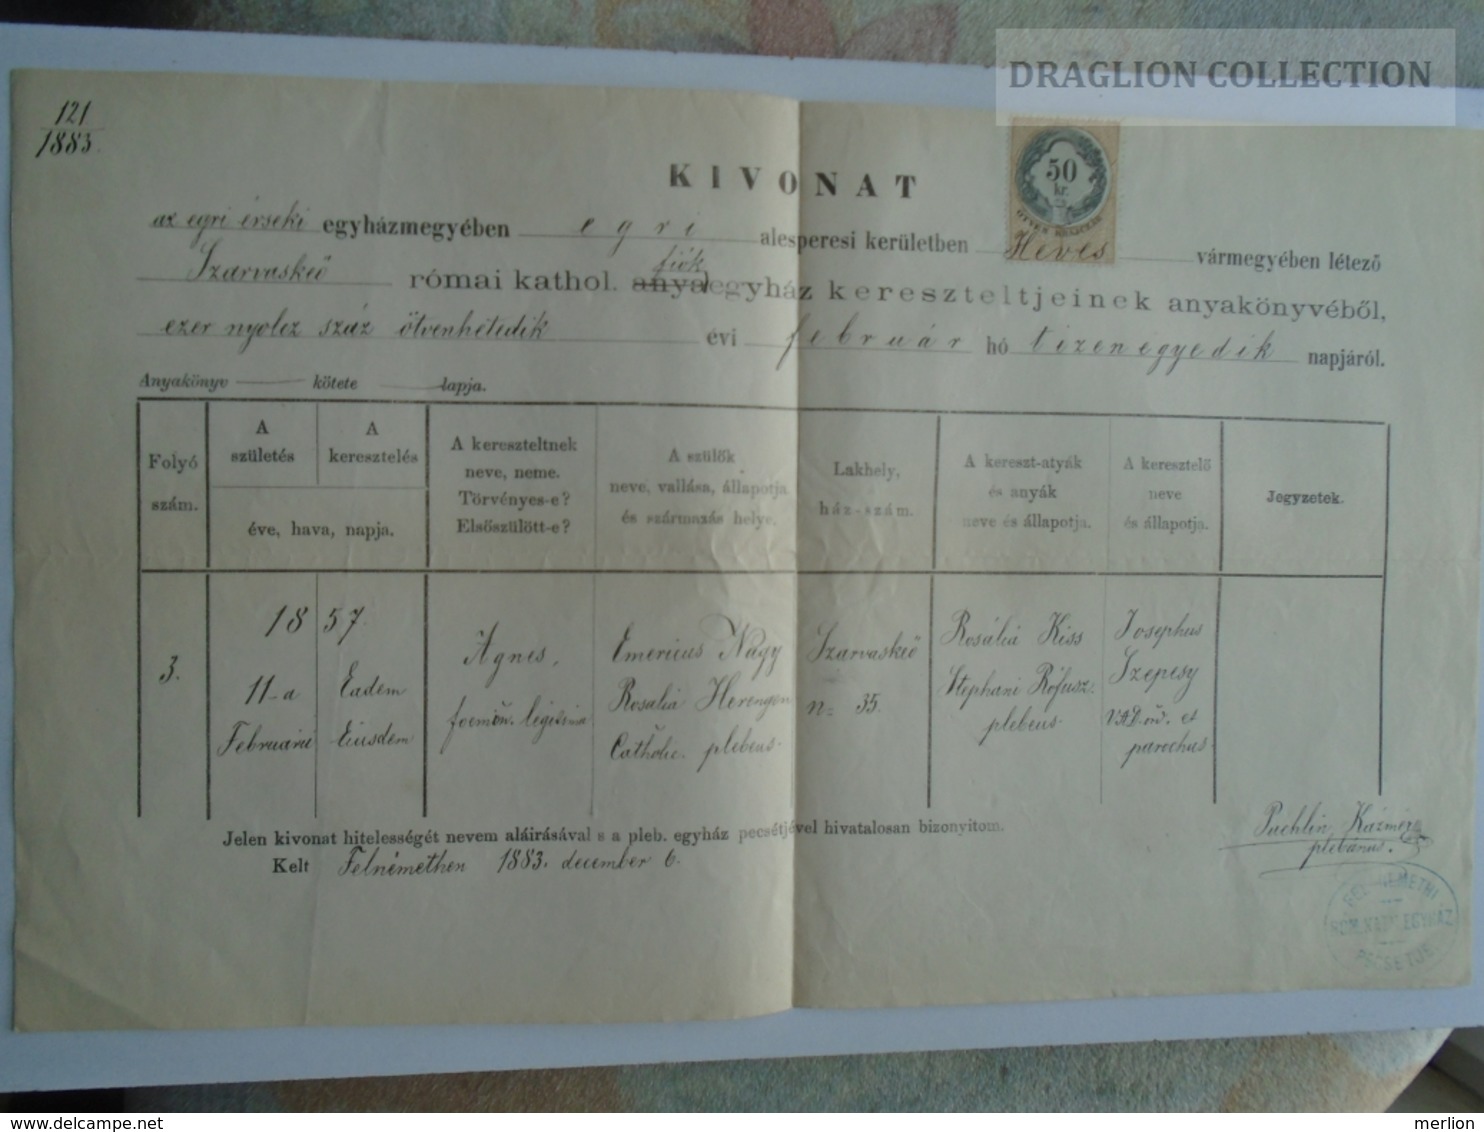 DRAGLION COLLECTION
121
1883.
KIVONAT
50
kr.
az egri érseki egyházmegyében egri alesperesi kerületben Heves vármegyében létező
fiók
Szarvaskeő római kathol. anyaegyház kereszteltjeinek anyakönyvéből,
ezer nyolcz száz ötvenhetedik évi február hó tizenegyedik napjáról.
Anyakönyv kötete lapja.
Folyó szám.
A születés
A keresztelés
éve, hava, napja.
A kereszteltnek
neve, neme.
Törvényes-e?
Elsőszülött-e?
A szülők
neve, vallása, állapotja
és származás helye.
Lakhely,
ház-szám.
A kereszt-atyák
és anyák
neve és állapotja.
A keresztelő
neve
és állapotja.
Jegyzetek.
3.
1857.
11-a
Februarii
Eadem
Eiusdem
Agnes,
legitima
Emericus Nagy
Rosalia
Catholic. plebeus.
Szarvaskeő
n= 35.
Rosália Kiss
Stephani
plebeus.
Josephus
Szepesy
et
parochus.
Jelen kivonat hitelességét nevem aláirásával s a pleb. egyház pecsétjével hivatalosan bizonyitom.
Kelt Felnémethen 1883. december 6.
Puchlin Kázmér
plebánus.
FEL-NÉMETHI
RÓM. KATH. EGYHÁZ
PECSÉTJE
delcampe.net
merlion